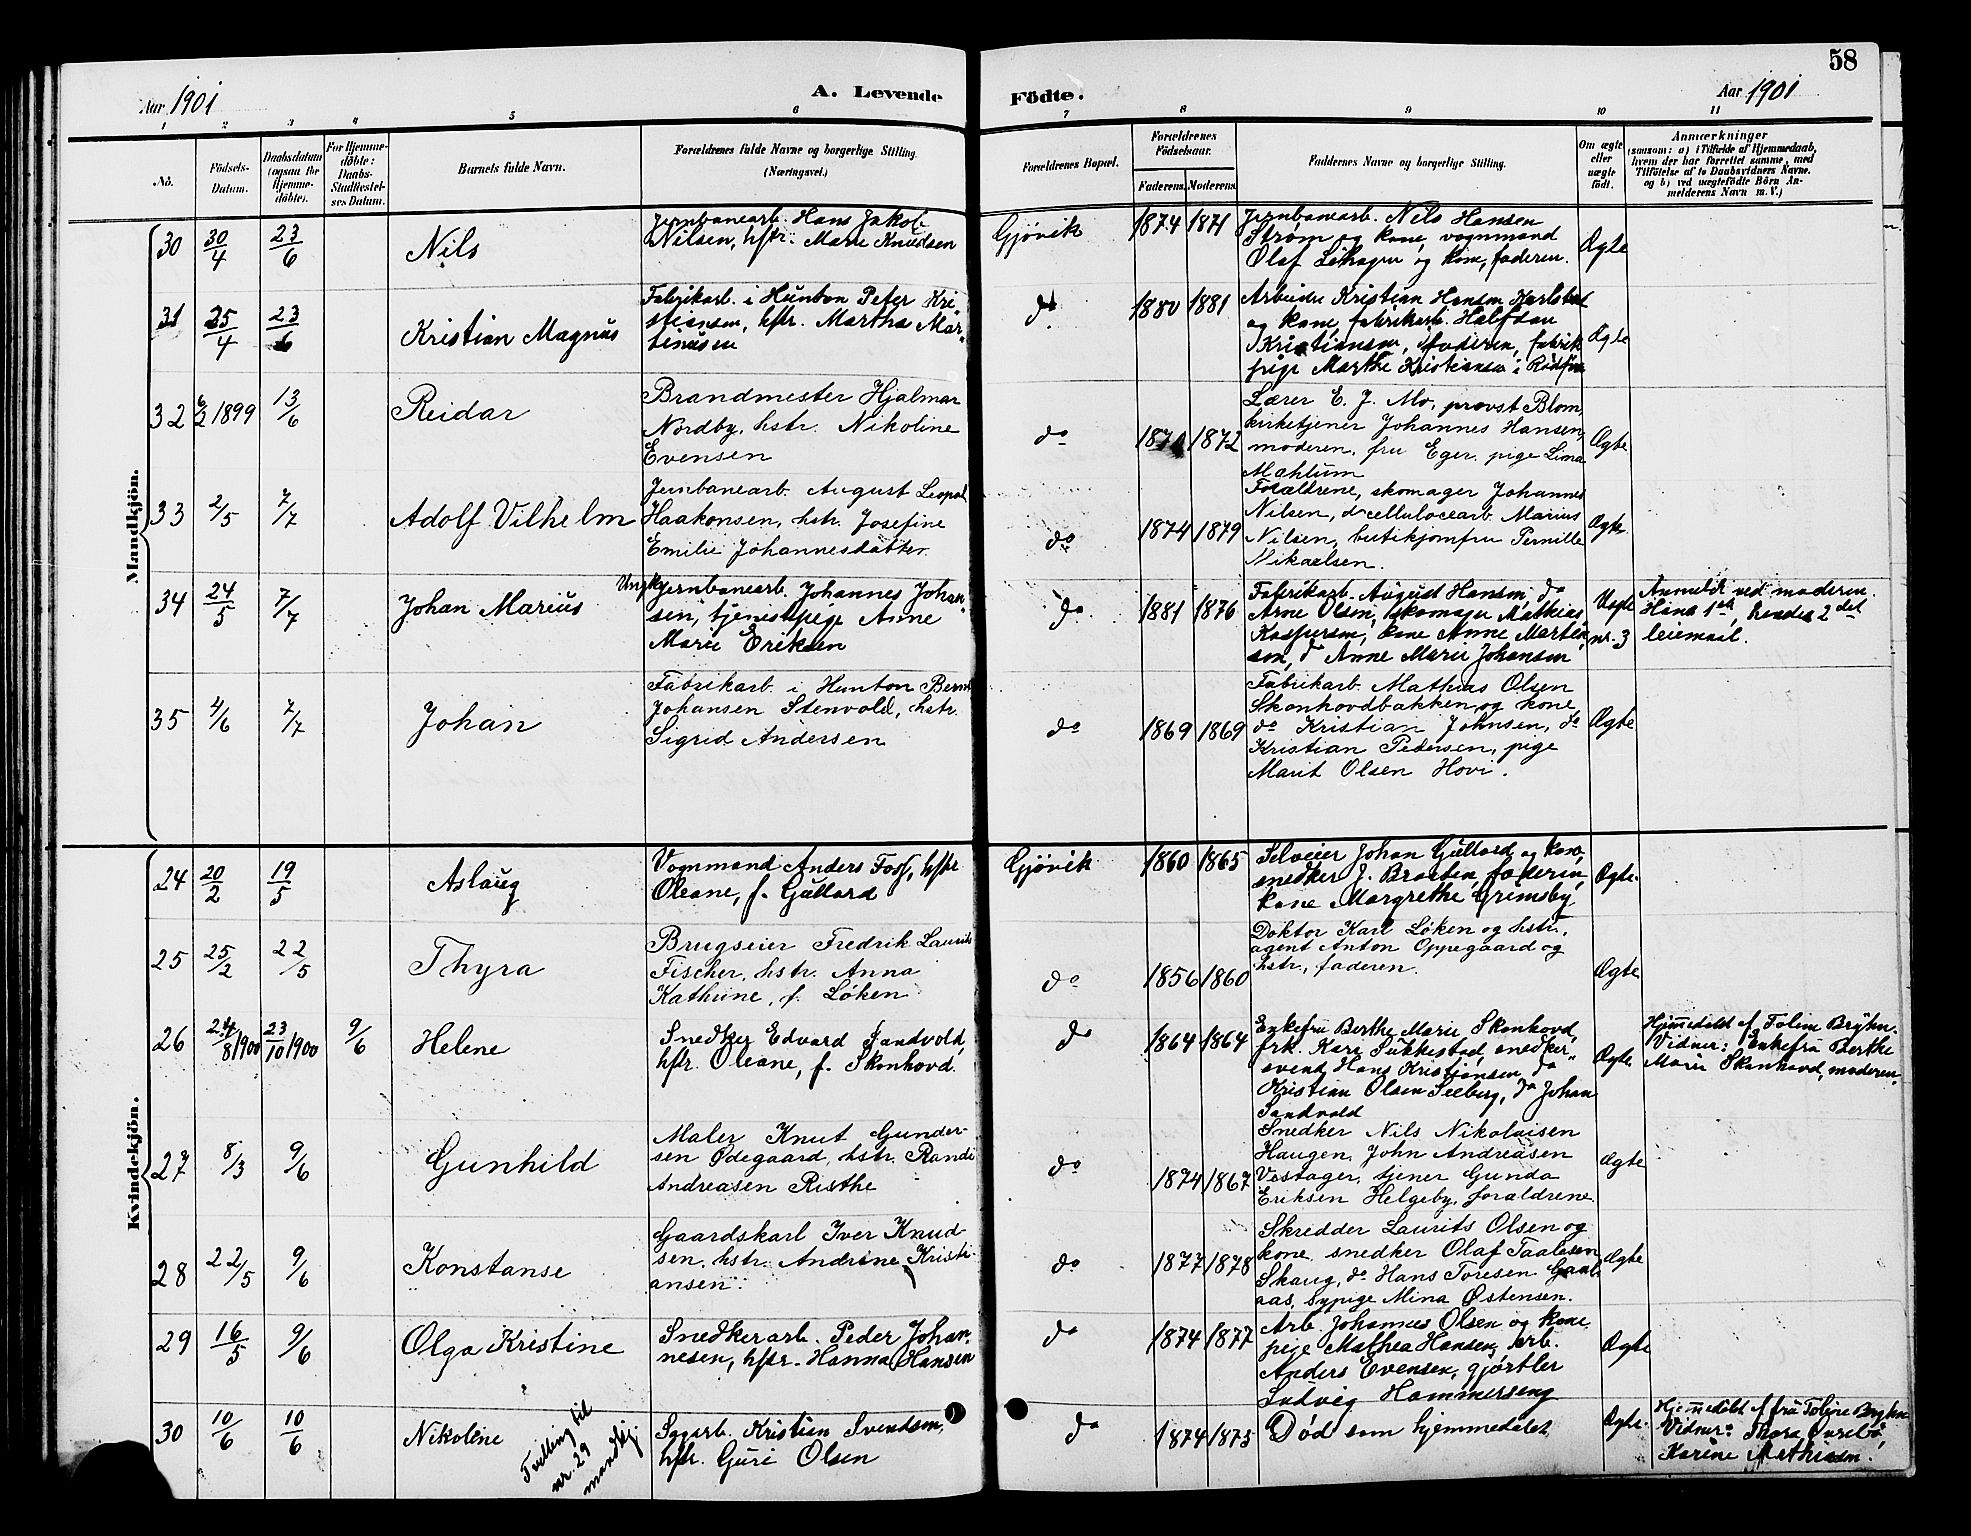 58
Aar 1901
A. Levende
Födte.
Aar 1901
1 2 3 4 5 6 7 8 9 10 11
No.
Födsels-
Datum.
Daabsdatum
(ogsaa for
Hjemme-
döbte).
For Hjemme-
döbte:
Daabs-
Stadfæstel-
ses Datum.
Barnets fulde Navn.
Forældrenes fulde Navne og borgerlige Stilling.
(Næringsvei.)
Forældrenes Bopæl.
Forældrenes
Födselsaar.
Faderens. Moderens.
Faddernes Navne og borgerlige Stilling.
Om ægte
eller
uægte
födt.
Anmærkninger
(saasom: a) i Tilfælde af Hjemmedaab,
hvem der har forrettet samme, med
Tilföielse af to Daabsvidners Navne.
og b) ved uægtefödte Börn An-
melderens Navn m. V.)
Mandkjön.
30 30/4 23/6 Nils
Jernbanearb. Hans Jakob
Nilsen, hstr. Marie Knudsen
Gjövik 1874 1871
Jernbanearb. Nils Hansen
Strøm og kone, vognmand
Olaf og kone, faderen.
Ægte
31 25/4 23/6 Kristian Magnus
Fabrikarb. i Hunton Peter Kri-
stiansen, hstr. Martha Mar-
tinusen
do 1880 1881
Arbeider Kristian Hansen Karlstad
og kone, fabrikarb. Halfdan
Kristiansen, faderen, fabrik
pige Marthe Kristiansen i
Ægte
32 6/2 1899 13/6 Reidar
Brandmester Hjalmar
Nordby, hstr. Nikoline
Evensen
do 1872
Lærer E. J. Mo, provst Blom,
kirketjener Johannes Hansen,
moderen, fru Eger, pige Lina
Mæhlum
Ægte
33 2/5 7/7 Adolf Vilhelm
Jernbanearb. August Leopol
Haakonsen, hstr. Josefine
Emilie Johannesdatter.
do 1874 1879
Forældrene, skomager Johannes
Nilsen, cellulocearb. Marius
Nilsen, butikjomfru Pernille
Mikaelsen.
Ægte
34 24/5 7/7 Johan Marius
Ungk. Jernbanearb. Johannes Johan-
sen, tjenestpige Anne
Marie Eriksen
do 1881 1876
Fabrikarb. August Hansen, do
Arne Olsen, skomager Mathias
Kaspersen, kone Anne Marten-
sen, do Anne Marie Johansen
Uægte
nr. 3
Anmeldt ved moderen.
Hans 1ste, hendes 2det
leiemaal.
35 4/6 7/7 Johan
Fabrikarb. i Hunton Bernt
Johansen Stenvold, hstr.
Sigrid Andersen
do 1869 1869
Fabrikarb. Mathias Olsen
Skonhovdbakken og kone,
do Kristian Johnsen, do
Kristian Pedersen, pige
Marit Olsen Hovi.
Ægte
Kvindekjön.
24 20/2 19/5 Aslaug
Vognmand Anders Foss, hstr
Oleane, f. Gullord
Gjövik 1860 1865
Selveier Johan Gullord og kone,
snedker J. Braaten, faderen,
kone Margrethe Grimsby.
Ægte.
25 25/2 22/5 Thyra
Brugseier Fredrik Laurits
Fischer, hstr. Anna
Kathrine, f. Løken
do 1856 1860
Doktor Karl Løken og hstr.,
agent Anton Oppegaard og
hstr., faderen.
Ægte
26 24/8 1900 23/10 1900 9/6 Helene
Snedker Edvard Sandvold,
hstr. Oleane, f. Skonhovd.
do 1864 1864
Enkefru Berthe Marie Skonhovd,
frk. Kari Sukkestad, snedker-
svend Hans Kristiansen, do
Kristian Olsen Seeberg, do Johan
Sandvold
Ægte
Hjemmedøbt af Toline Bryhn.
Vidner: Enkefru Berthe
Marie Skonhovd, moderen.
27 8/3 9/6 Gunhild
Maler Knut Gunder-
sen Ødegaard, hstr. Randi
Andreasen Risthe
do 1874 1867
Snedker Nils Nikolaisen
Haugen, John Andreasen
Vestager, tjener Gunda
Eriksen Helgeby, forældrene.
Ægte
28 22/5 9/6 Konstanse
Gaardskarl Iver Knud-
sen, hstr. Andrine Kristi-
ansen.
do 1877 1878
Skredder Laurits Olsen og
kone, snedker Olaf Taalesen
Skaug, do Hans Toresen
aas, sypige Mina Østensen.
Ægte
29 16/5 9/6 Olga Kristine
Snedkerarb. Peder Johan-
nesen, hstr. Hanna Hansen
do 1874 1877
Arb. Johannes Olsen og kone,
pige Mathea Hansen, arb.
Anders Evensen, gjørtler
Ludvig Hammerseng
Ægte
30 10/6 10/6 Nikoline
Tvilling til
nr. 29
mandkj.
Sagarb. Kristian Svendsen,
hstr. Guri Olsen
do 1874 1875
Død som hjemmedøbt
Ægte.
Hjemmedøbt af fru Toline Bryhn
Vidner: Thora
Karine Mathisen.